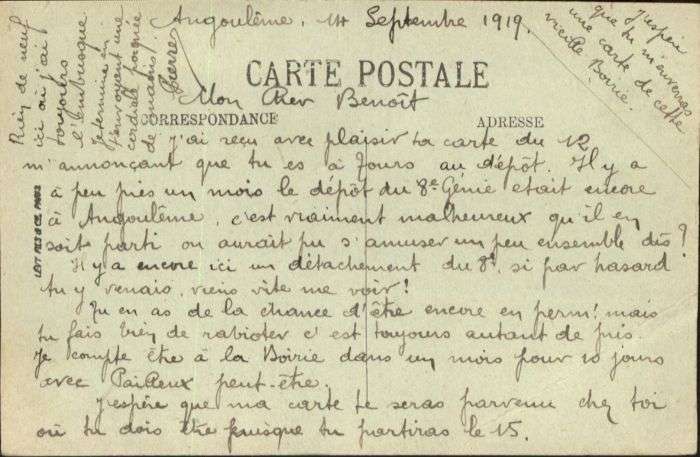 Angoulême, 14 Septembre 1919.
CARTE POSTALE
Mon Cher Benoît
CORRESPONDANCE
ADRESSE
J'ai reçu avec plaisir ta carte du 12
m'annonçant que tu es à Tours au dépôt. Il y a
à peu près un mois le dépôt du 8e Génie était encore
à Angoulême, c'est vraiment malheureux qu'il en
soit parti on aurait pu s'amuser un peu ensemble dis ?
Il y a encore ici un détachement du 8e, si par hasard
tu y venais, viens vite me voir !
Tu en as de la chance d'être encore en perm ! mais
tu fais bien de rabioter c'est toujours autant de pris.
Je compte être à la Boirie dans un mois pour 10 jours
avec peut-être.
J'espère que ma carte te seras parvenu chez toi
où tu dois être puisque tu partiras le 15.
Rien de neuf
ici où j'ai
toujours
l'embusque.
Je termine en
t'envoyant une
cordiale poignée
de mains.
Pierre
J'espère
que tu m'enverras
une carte de cette
vieille Boirie.
LEVY FILS & CIE PARIS